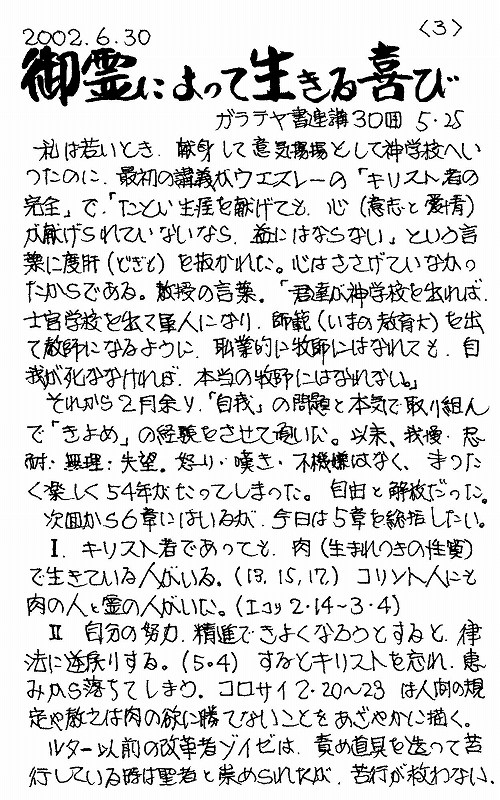 2002.6.30 〈3〉
御霊によって生きる喜び
ガラテヤ書連講30回 5・25
私は若いとき、献身して意気揚揚として神学校へい
ったのに、最初の講義がウエスレーの「キリスト者の
完全」で、「たとい生涯を献げても、心(意志と愛情)
が献げられていないなら、益にはならない」という言
葉に度肝(どぎも)を抜かれた。心はささげていなかっ
たからである。教授の言葉。「君達が神学校を出れば、
士官学校を出て軍人になり、師範(いまの教育大)を出
て教師になるように、職業的に牧師にはなれても、自
我が死ななければ、本当の牧師にはなれない。」
それから2月余り、「自我」の問題と本気で取り組ん
で「きよめ」の経験をさせて頂いた。以来、我慢・忍
耐・無理・失望・怒り・嘆き・不機嫌はなく、まった
く楽しく54年がたってしまった。自由と解放だった。
次回から6章にはいるが、今日は5章を総括したい。
Ⅰ. キリスト者であっても、肉(生まれつきの性質)
で生きている人がいる。(13, 15, 17) コリント人にも
肉の人と霊の人がいた。(Ⅰコリ2・14~3・4)
Ⅱ 自分の努力、精進できよくなろうとすると、律
法に逆戻りする。(5・4) するとキリストを忘れ、恵
みから落ちてしまう。コロサイ2・20~23 は人間の規
定や教えは肉の欲に勝てないことをあざやかに描く。
ルター以前の改革者ゾイゼは、責め道具を造って苦
行している時は聖者と崇められたが、苦行が救わない、